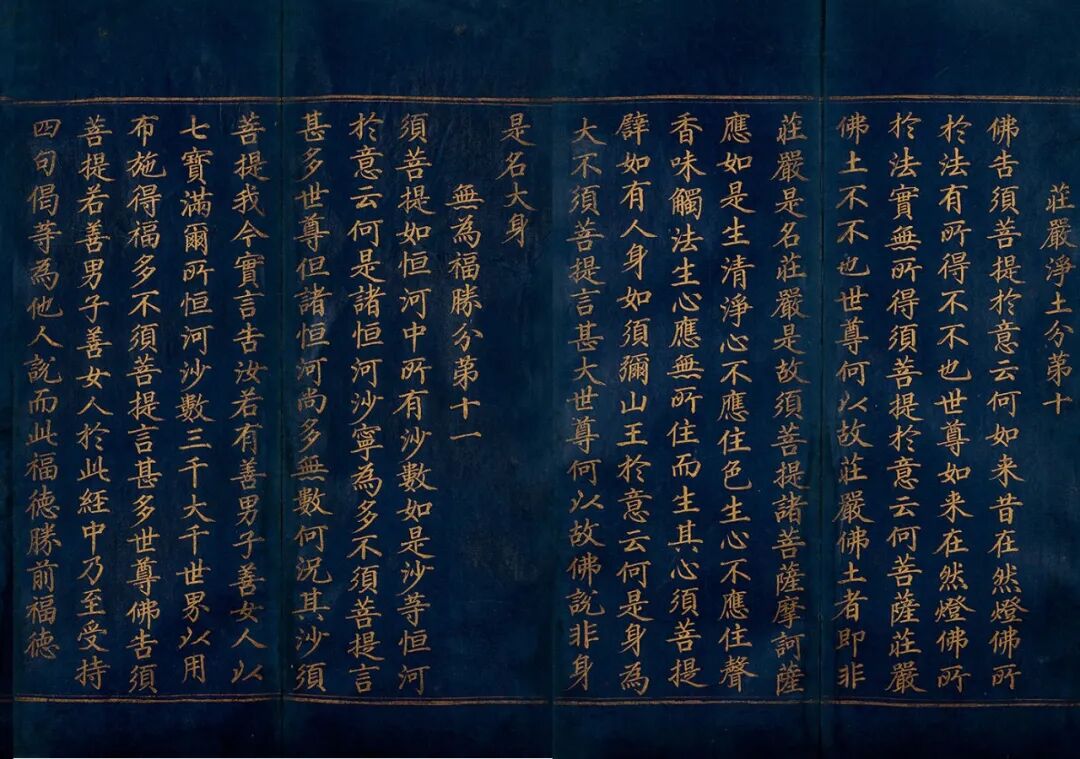 莊嚴淨土分第十
佛告須菩提於意云何如来昔在然燈佛所
於法有所得不不也世尊如来在然燈佛所
於法實無所得須菩提於意云何菩薩莊嚴
佛土不不也世尊何以故莊嚴佛土者即非
莊嚴是名莊嚴是故須菩提諸菩薩摩訶薩
應如是生清淨心不應住色生心不應住聲
香味觸法生心應無所住而生其心須菩提
譬如有人身如須彌山王於意云何是身為
大不須菩提言甚大世尊何以故佛說非身
是名大身
無為福勝分第十一
須菩提如恒河中所有沙數如是沙等恒河
於意云何是諸恒河沙寧為多不須菩提言
甚多世尊但諸恒河尚多無數何況其沙須
菩提我今實言告汝若有善男子善女人以
七寶滿爾所恒河沙數三千大千世界以用
布施得福多不須菩提言甚多世尊佛告須
菩提若善男子善女人於此經中乃至受持
四句偈等為他人說而此福德勝前福德